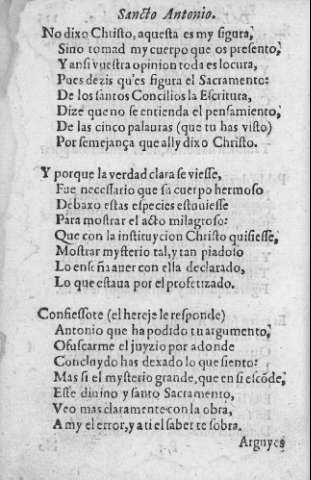 Sancto Antonio.
No dixo Christo, aquesta es my figura,
Sino tomad my cuerpo que os presento,
Y ansi vuestra opinion toda es locura,
Pues dezis qu'es figura el Sacramento:
De los santos Concilios la Escritura,
Dize que no se entienda el pensamiento,
De las cinco palauras (que tu has visto)
Por semejança que ally dixo Christo.
Y porque la verdad clara se viesse,
Fue necessario que su cuerpo hermoso
Debaxo estas especies estuuiesse
Para mostrar el acto milagroso:
Que con la instituycion Christo quisiesse,
Mostrar mysterio tal, y tan piadoso
Lo enseña auer con ella declarado,
Lo que estaua por el profetizado.
Confiessote (el hereje le responde)
Antonio que ha podido tu argumento,
Ofuscarme el juyzio por adonde
Concluydo has dexado lo que siento:
Mas si el mysterio grande, que en si escõde,
Este diuino y santo Sacramento,
Veo mas claramente con la obra,
A my el error, y a ti el saber te sobra.
Arguyes